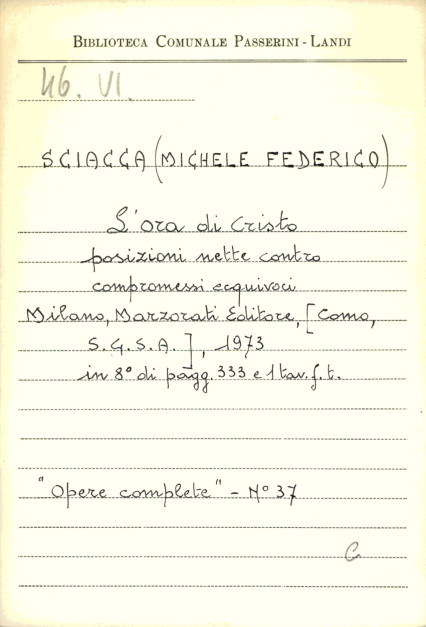 BIBLIOTECA COMUNALE PASSERINI - LANDI
46. VI.
SCIACCA (MICHELE FEDERICO)
L'ora di Cristo
posizioni nette contro
compromessi equivoci
Milano, Marzorati Editore, [Como,
S.G.S.A.], 1973
in 8° di pagg. 333 e 1 tav. f. t.
"Opere complete" - N° 37
C